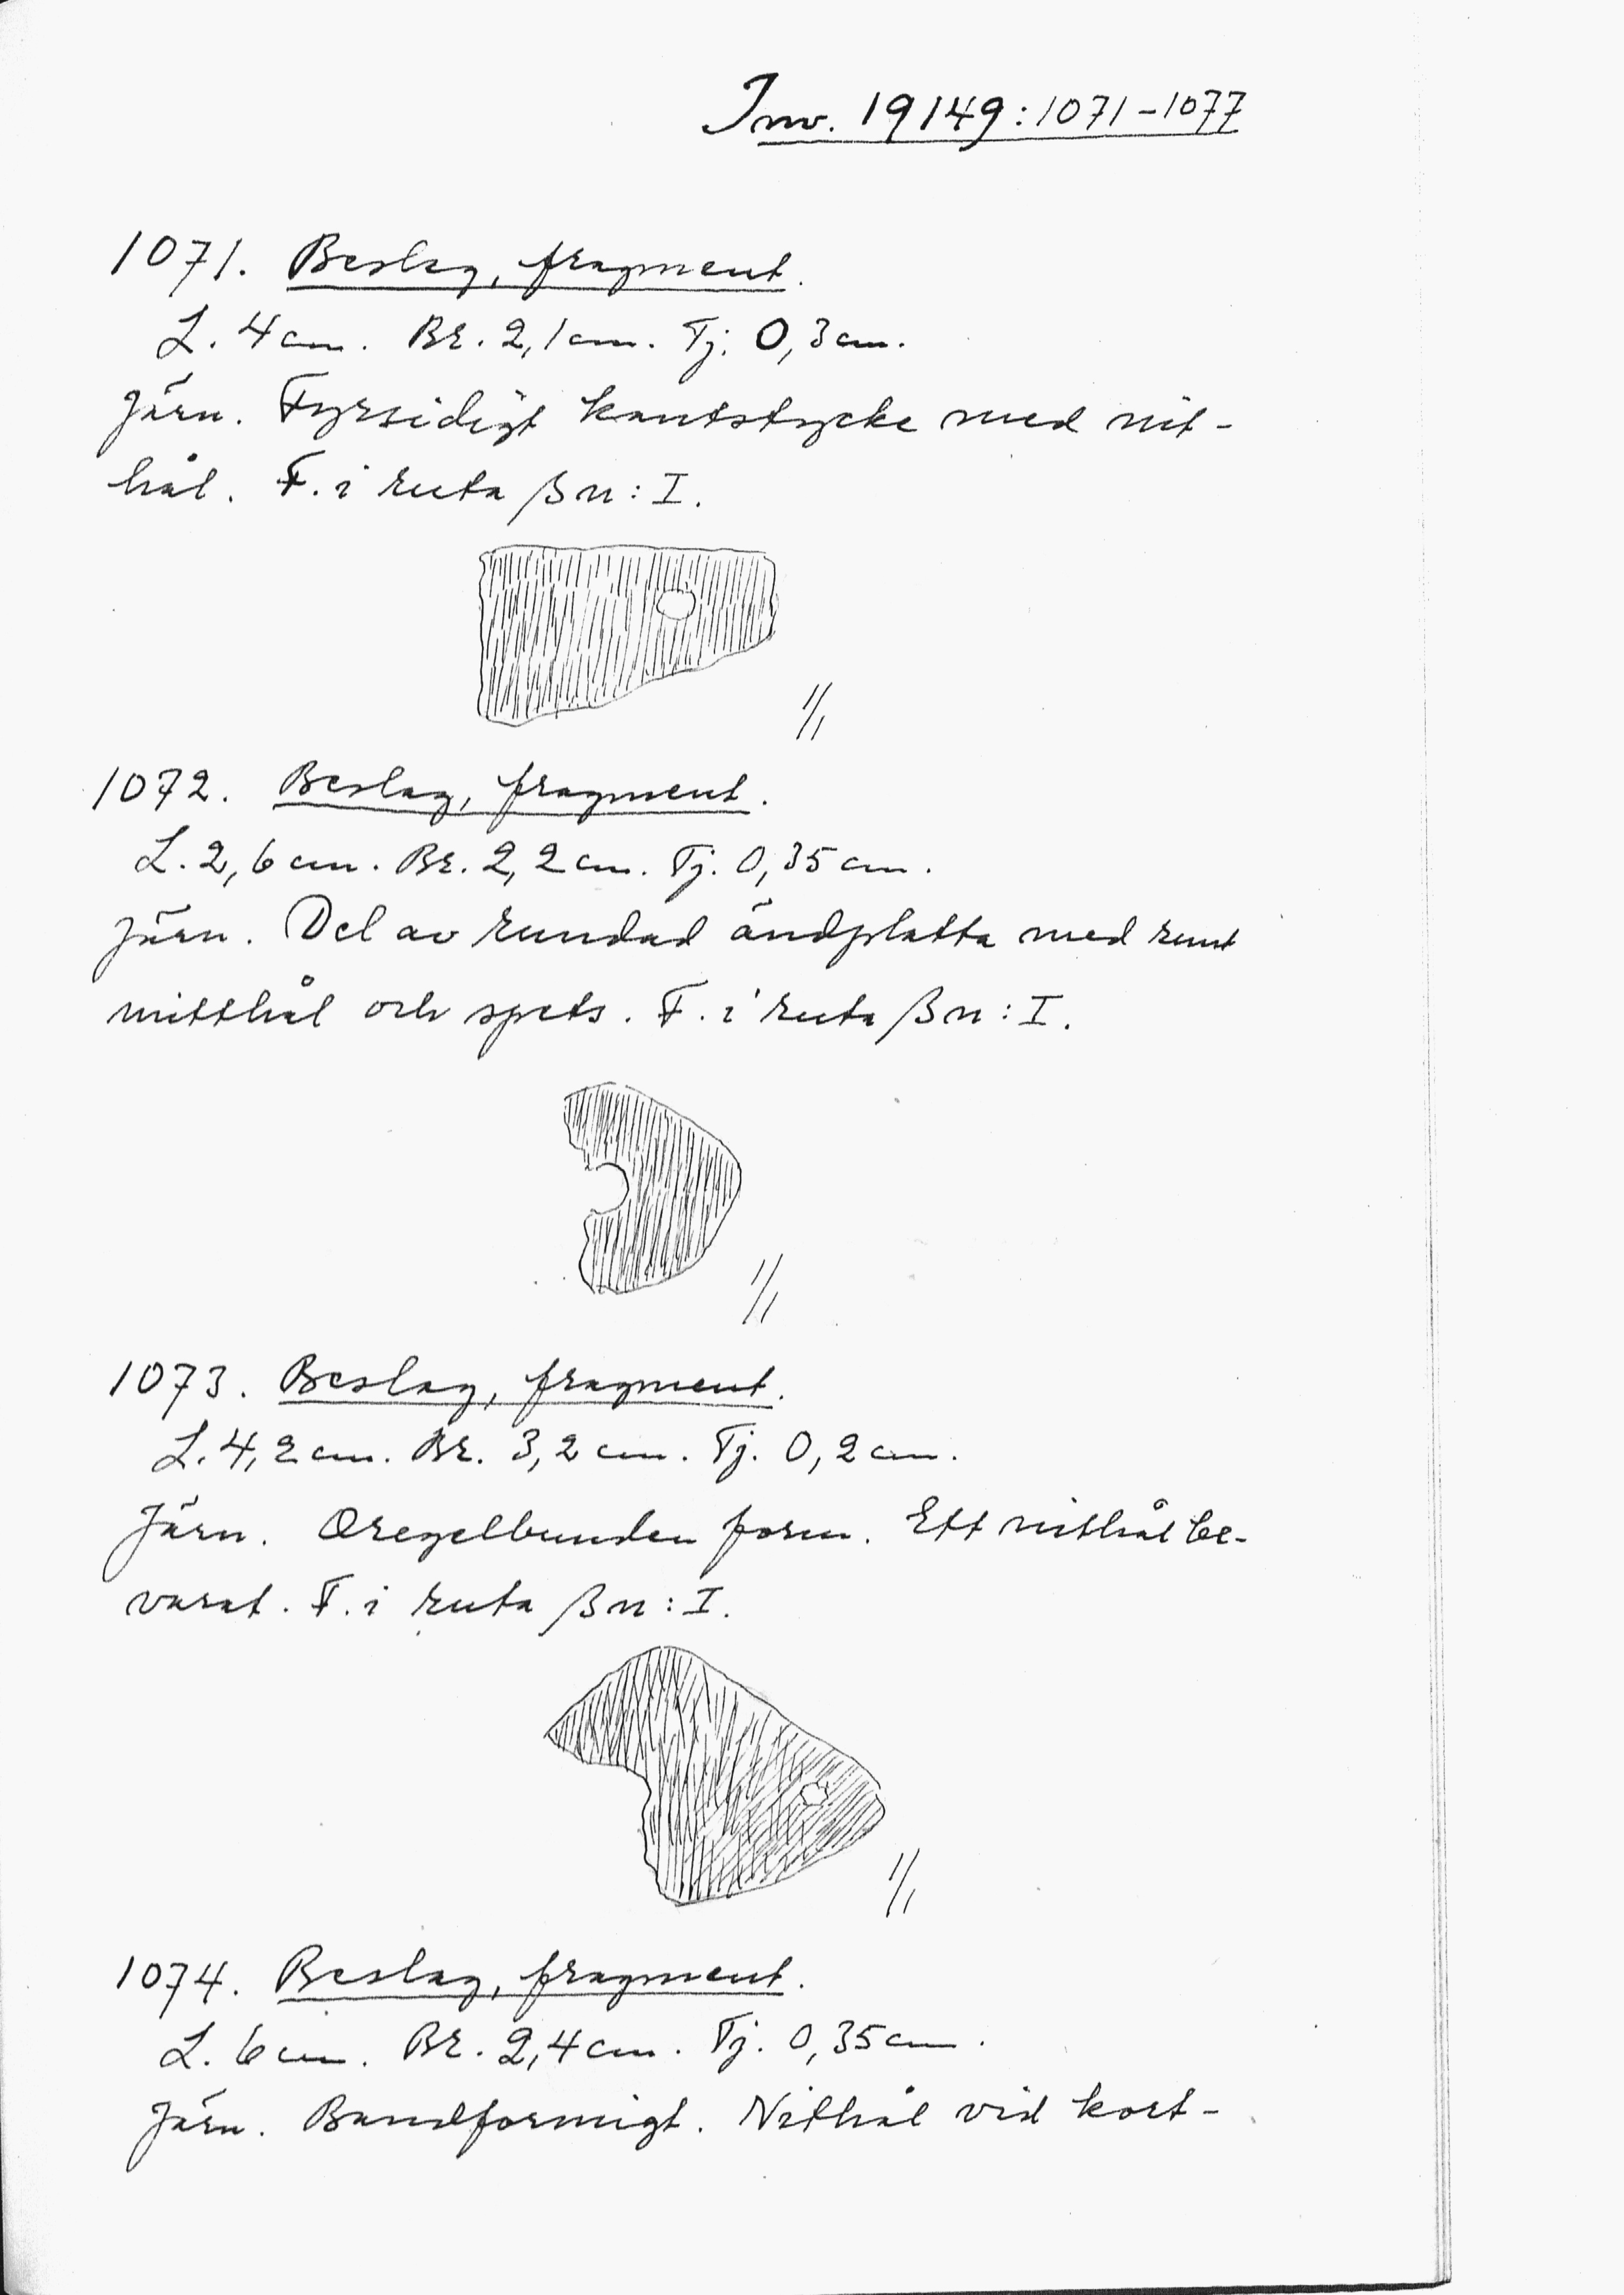 Inv. 19149:1071-1077
1071. Beslag, fragment.
L. 4 cm. Br. 2,1 cm. Tj. 0,3 cm.
Järn. Fyrsidigt kantstycke med nit-
hål. F. i ruta βn:I.
1/1
1072. Beslag, fragment.
L. 2,6 cm. Br. 2,2 cm. Tj. 0,35 cm.
Järn. Del av rundad ändplatta med runt
mitthål och spets. F. i ruta βn:I.
1/1
1073. Beslag, fragment.
L. 4,2 cm. Br. 3,2 cm. Tj. 0,2 cm.
Järn. Oregelbunden form. Ett nithål be-
varat. F. i ruta βn:I.
1/1
1074. Beslag, fragment.
L. 6 cm. Br. 2,4 cm. Tj. 0,35 cm.
Järn. Bandformigt. Nithål vid kort-